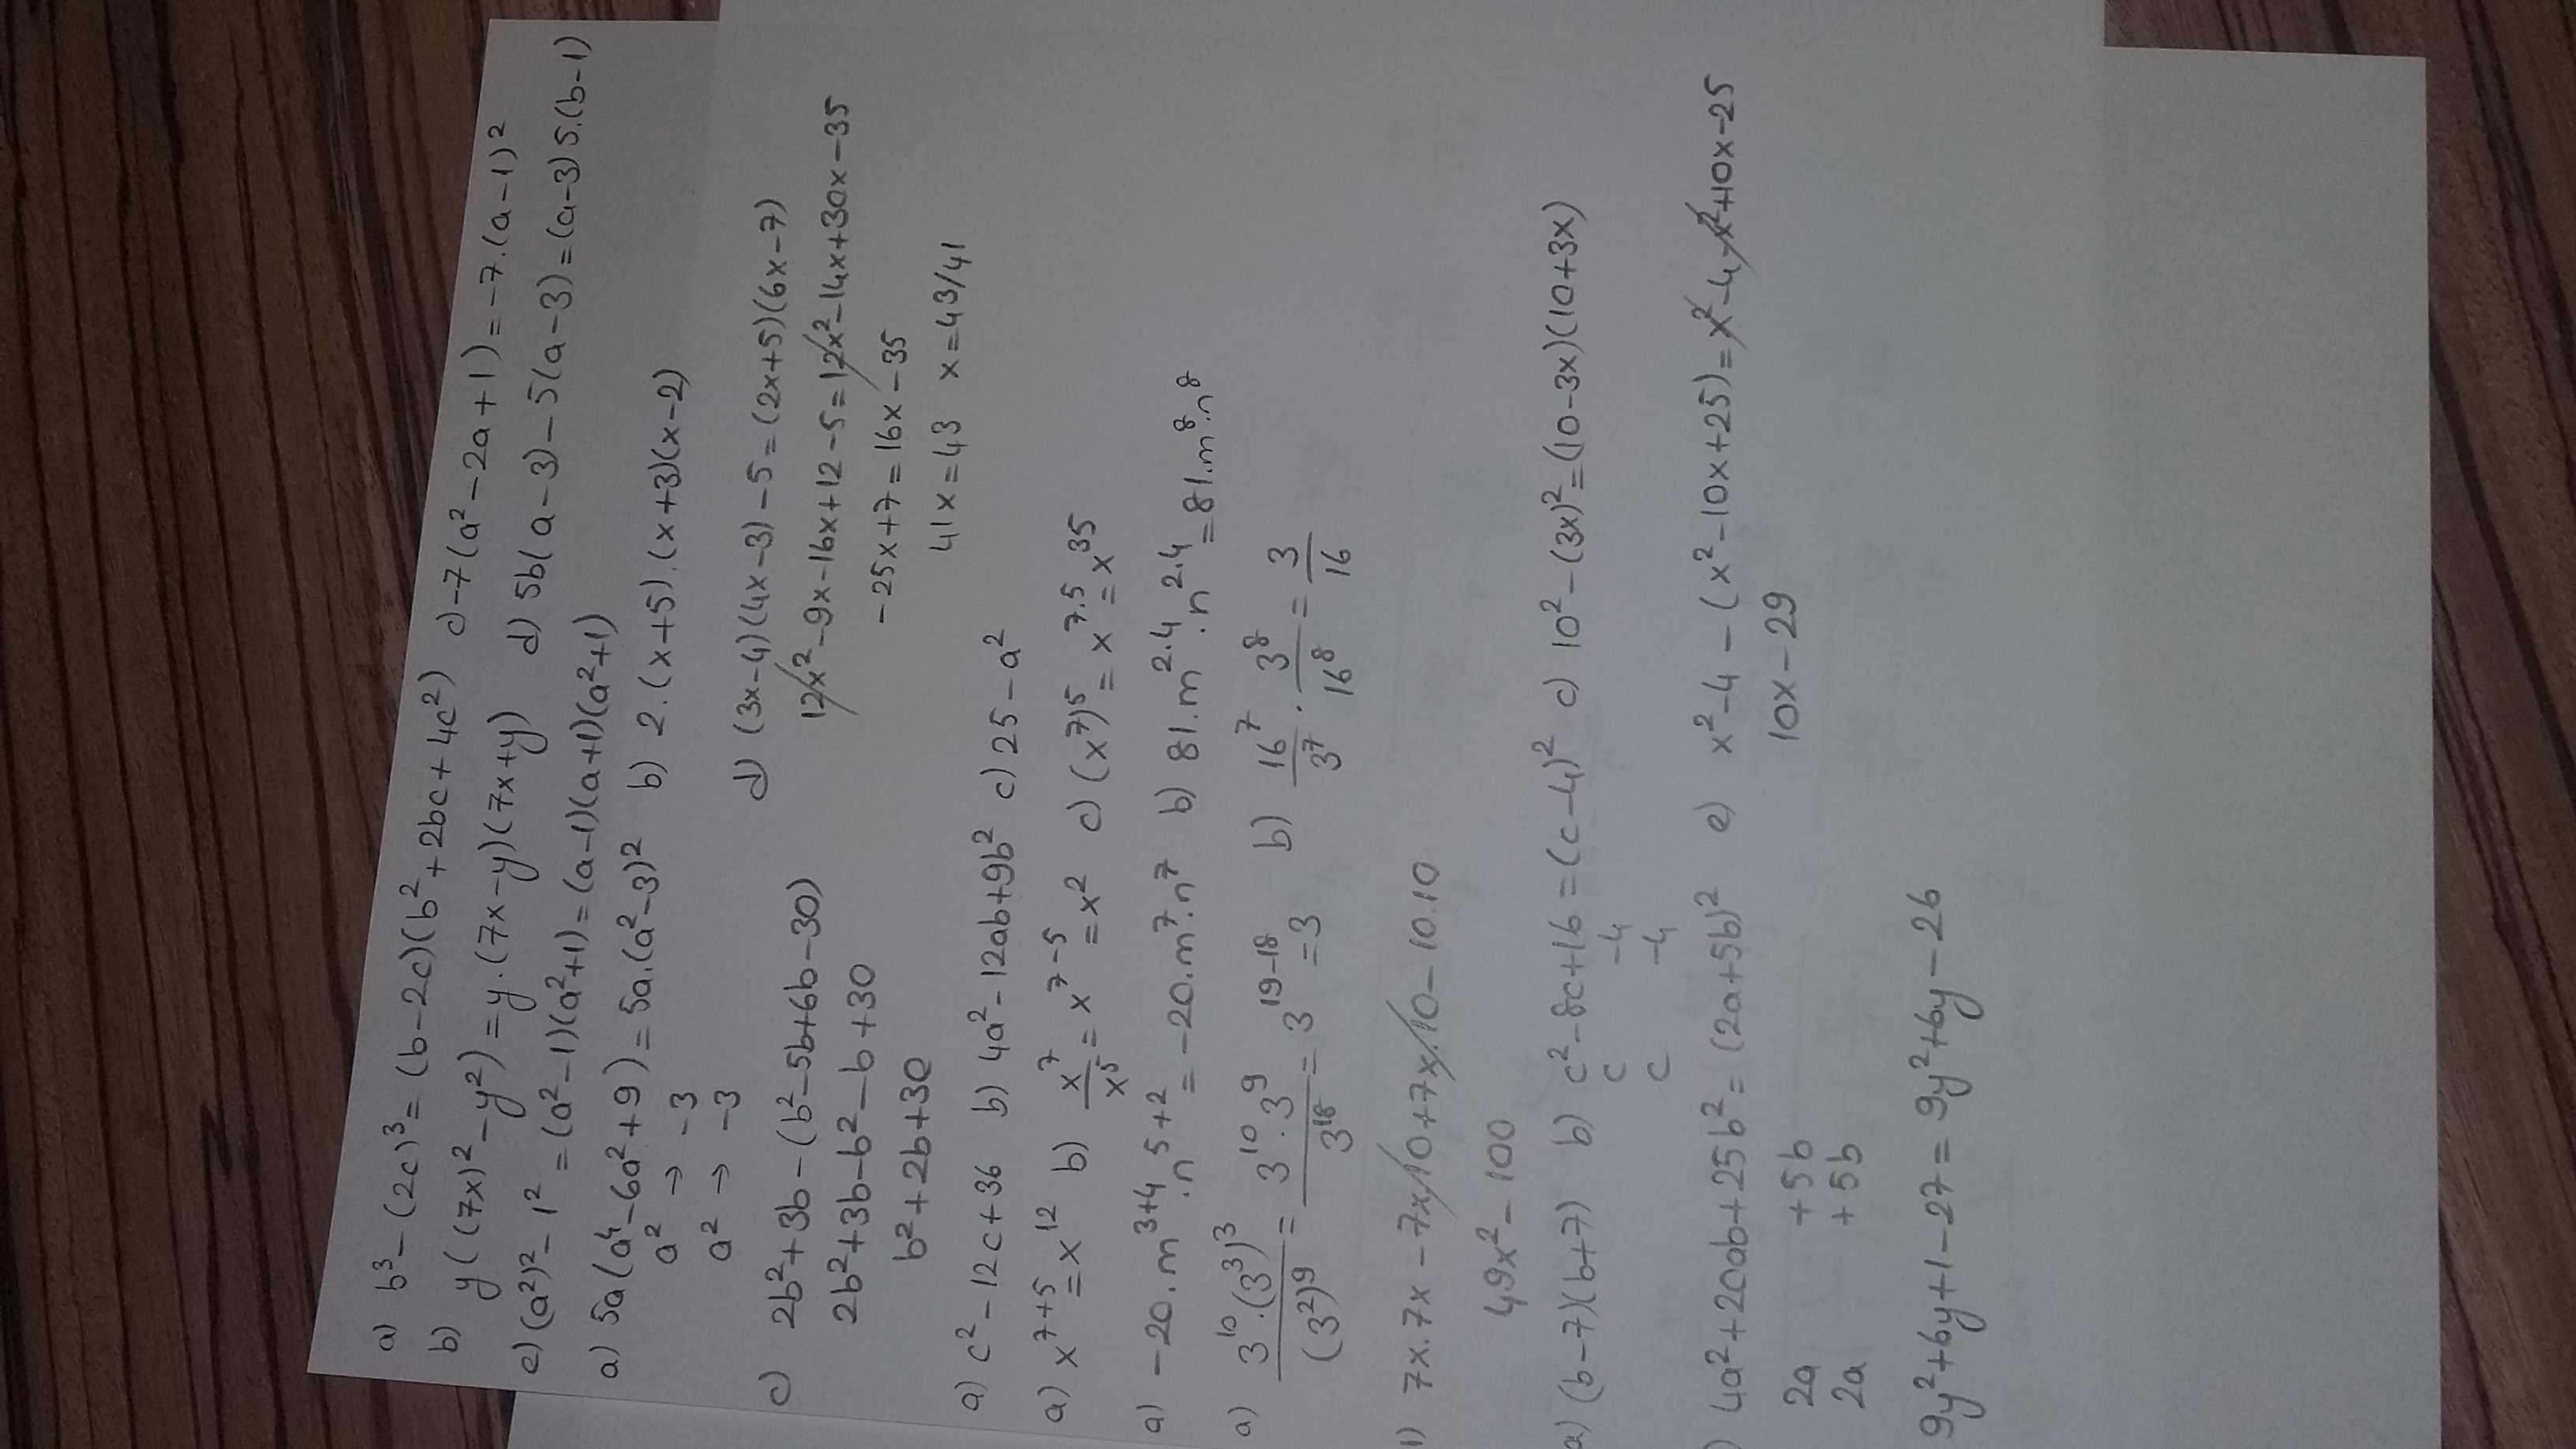 a) b³-(2c)³=(b-2c)(b²+2bc+4c²) c)-7(a²-2a+1)=-7.(a-1)²
b) y((7x)²-y²)=y.(7x-y)(7x+y) d) 5b(a-3)-5(a-3)=(a-3)5.(b-1)
e)(a²)²-1²=(a²-1)(a²+1)=(a-1)(a+1)(a²+1)
a) 5a(a⁴-6a²+9)=5a.(a²-3)² b) 2.(x+5).(x+3)(x-2)
a² → -3
a² → -3
c) 2b²+3b-(b²-5b+6b-30)
2b²+3b-b²-b+30
b²+2b+30
d) (3x-4)(4x-3)-5=(2x+5)(6x-7)
12x²-9x-16x+12-5=12x²-14x+30x-35
-25x+7=16x-35
41x=43 x=43/41
a) c²-12c+36 b) 4a²-12ab+9b² c) 25-a²
a) x⁷⁺⁵=x¹² b) x⁷/x⁵=x⁷⁻⁵=x² c) (x⁷)⁵=x⁷·⁵=x³⁵
a) -20.m³⁺⁴.n⁵⁺²=-20.m⁷.n⁷ b) 81.m²·⁴.n²·⁴=81.m⁸.n⁸
a) 3¹⁰.(3³)³/(3²)⁹=3¹⁰.3⁹/3¹⁸=3¹⁹⁻¹⁸=3 b) 16⁷/3⁷.3⁸/16⁸=3/16
1) 7x.7x-7x.10+7x.10-10.10
49x²-100
a) (b-7)(b+7) b) c²-8c+16=(c-4)² c) 10²-(3x)²=(10-3x)(10+3x)
c -4
c -4
) 4a²+20ab+25b²=(2a+5b)² e) x²-4-(x²-10x+25)=x²-4-x²+10x-25
2a +5b
2a +5b
10x-29
9y²+6y+1-27=9y²+6y-26